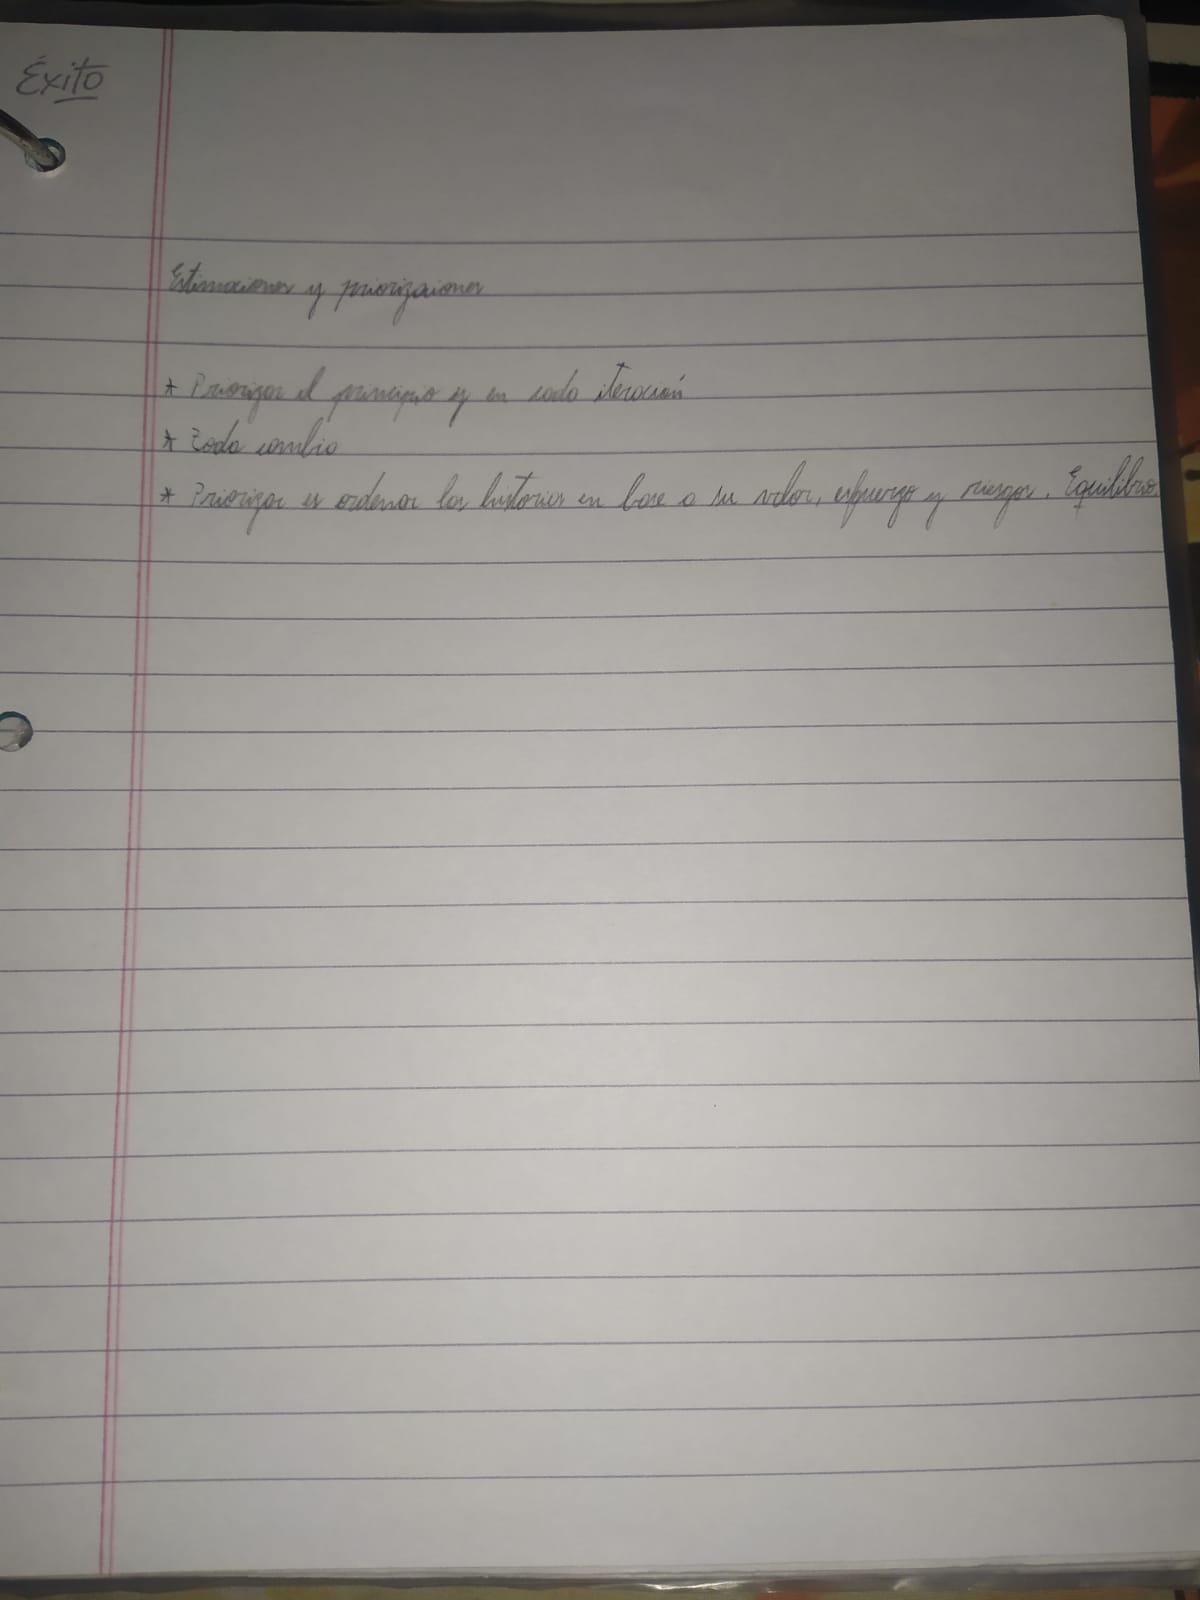 Éxito
Estimaciones y priorizaiones
* Priorizar al principio y en cada iteración
* Todo cambio
* Priorizar es ordenar las historias en base a su valor, esfuerzo y riesgos. Equilibrio.